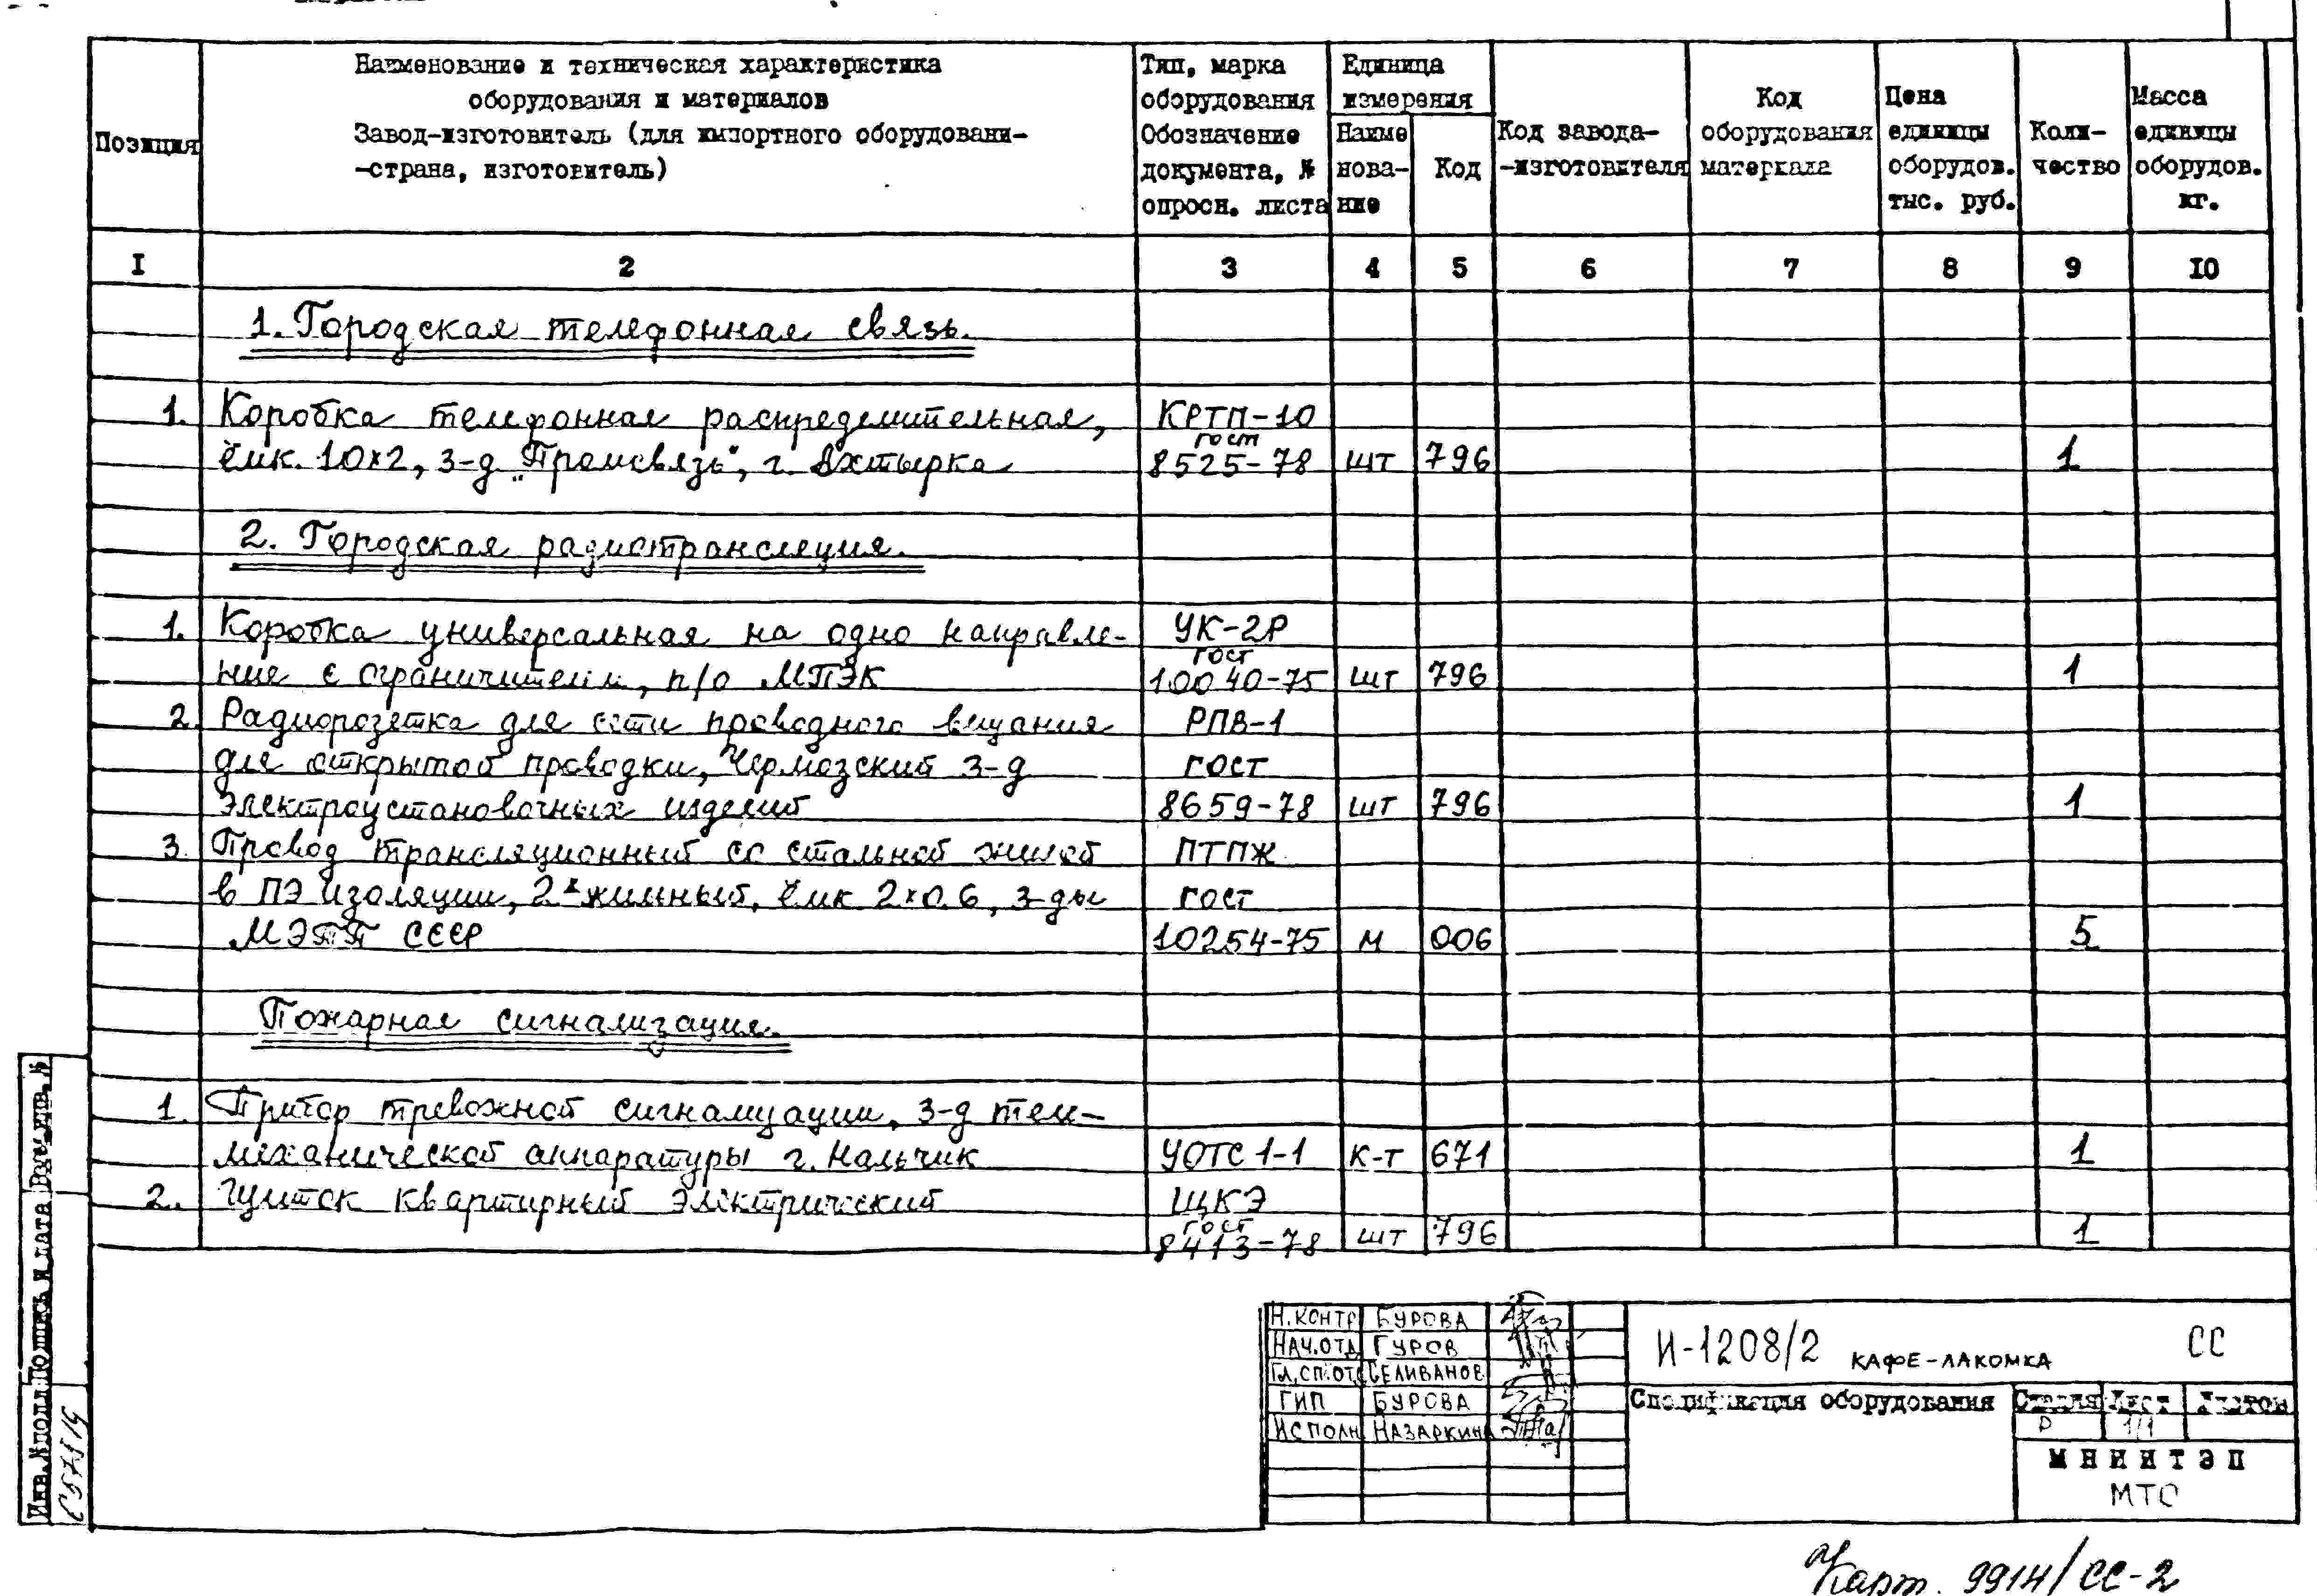 Позиция
Наименование и техническая характеристика
оборудования и материалов
Завод-изготовитель (для импортного оборудовани-
-страна, изготовитель)
Тип, марка
оборудования
Обозначение
документа, №
опросн. листа
Единица
измерения
Наиме
нова-
ние
Код
Код завода-
-изготовителя
Код
оборудования
материала
Цена
единицы
оборудов.
тыс. руб.
Коли-
чество
Масса
единицы
оборудов.
кг.
I 2 3 4 5 6 7 8 9 10
1. Городская телефонная связь.
1. Коробка телефонная распределительная, КРТП-10
ёмк. 10х2, з-д "Промсвязь", г. Ахтырка ГОСТ 8525-78 шт 796 1
2. Городская радиотрансляция.
1. Коробка универсальная на одно направле- УК-2Р
ние с ограничителем, п/о МПЭК ГОСТ 10040-75 шт 796 1
2. Радиорозетка для сети проводного вещания РПВ-1
для открытой проводки, Чермозский з-д ГОСТ
электроустановочных изделий 8659-78 шт 796 1
3. Провод трансляционный со стальной жилой ПТПЖ
в ПЭ изоляции, 2х жильный, ёмк 2х0.6, з-ды ГОСТ
МЭТП СССР 10254-75 м 006 5
Пожарная сигнализация.
1. Прибор тревожной сигнализации, з-д теле-
механической аппаратуры г. Нальчик УОТС 1-1 К-Т 671 1
2. Щиток квартирный электрический ЩКЭ
ГОСТ 8413-78 шт 796 1
Н.КОНТР БУРОВА
НАЧ.ОТД ГУРОВ
ГЛ.СП.ОТД СЕЛИВАНОВ
ГИП БУРОВА
ИСПОЛН НАЗАРКИНА
И-1208/2 КАФЕ-ЛАКОМКА СС
Спецификация оборудования
Стадия Лист Листов
Р 1/1
МНИИТЭП
МТО
Инв.№подл Подпись и дата Взам.инв.№
Карт. 9914/СС-2